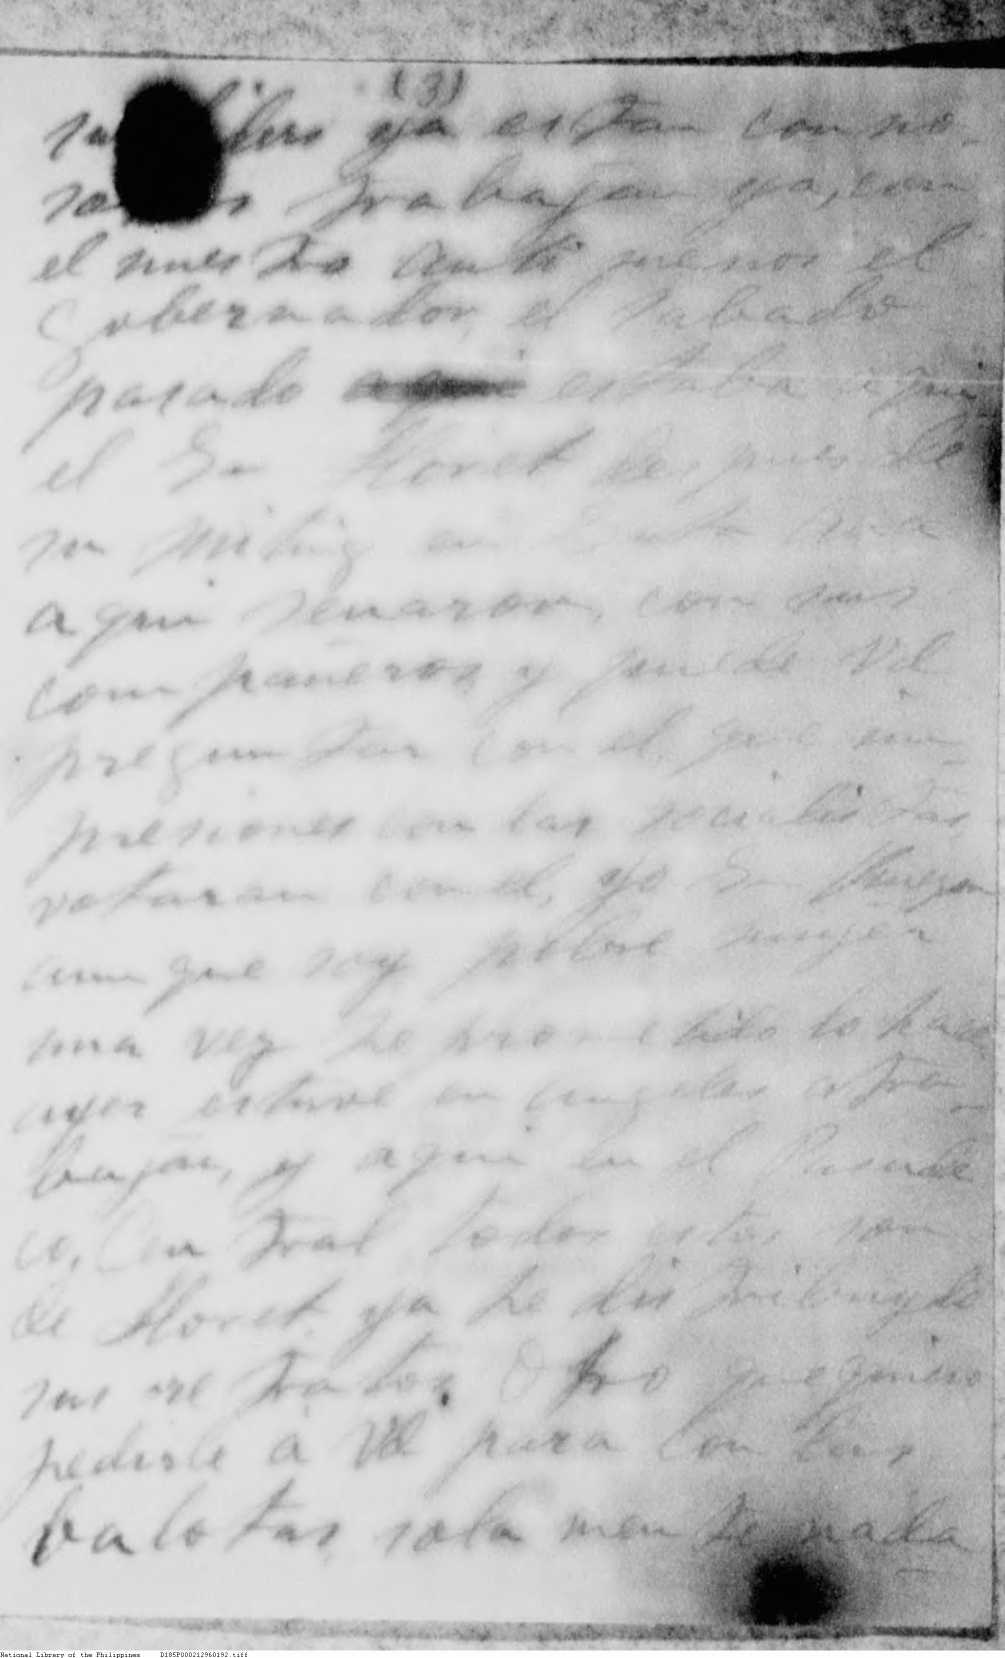 (3)
ya estan con no-
trabajan ya, con
el nuestro menos el
Gobernador, el sabado
pasado aqui estaba aqui
el Sr Lloret despues de
su miting en
aqui senaron, con sus
compañeros, y puede Vd
preguntar con el, que im-
presiones con las socialistas
votaran con el, yo Sr Quezon
aunque soy pobre mujer
una vez he prometido lo hago
ayer estuve en angeles a tra-
bajar, y aqui en el
co, Central todos estos son
de Lloret ya he distribuydo
sus retratos. Otro que quiero
pedirle á Vd para con las
balotas solamente nada
National Library of the Philippines D185P000212960192.tiff